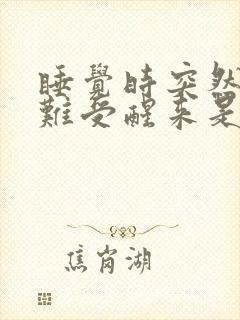 睡覺時突然
難受醒來是
焦岗湖